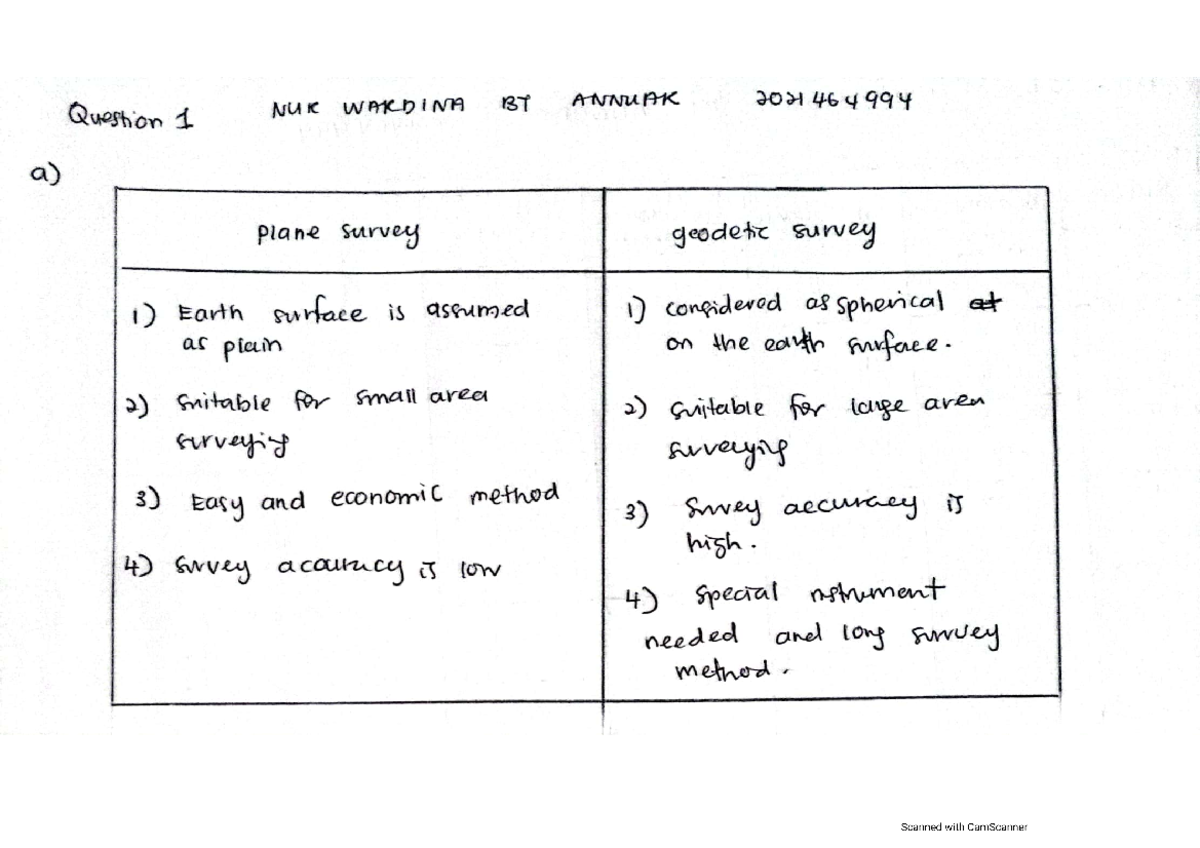 Question 1 NUR WARDINA BT ANNUAR 2021464994
a)
plane survey
geodetic survey
1) Earth surface is assumed
as plain
2) suitable for small area
surveying
3) Easy and economic method
4) survey accuracy is low
1) considered as spherical at
on the earth surface.
2) suitable for large area
surveying
3) survey accuracy is
high.
4) special instrument
needed and long survey
method.
Scanned with CamScanner